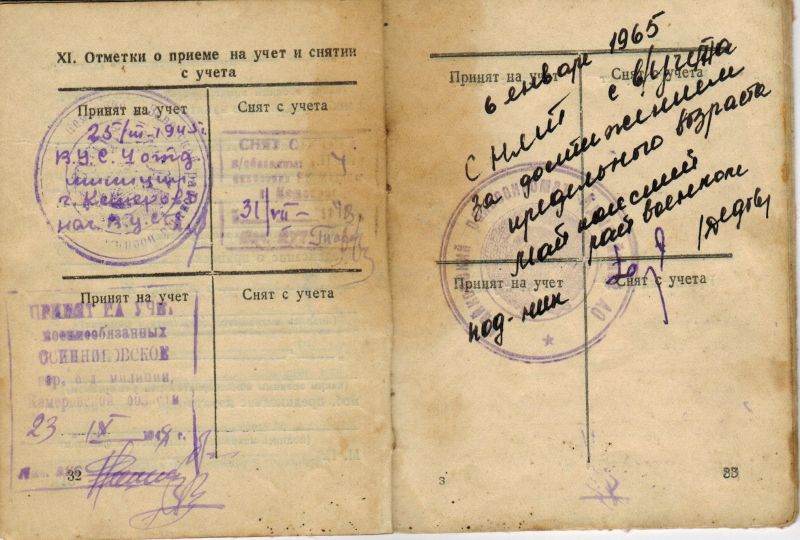 XI. Отметки о приеме на учет и снятии
с учета
Принят на учет
Снят с учета
25/III-1945г.
В.У.С. 4 отд
милиции
г. Кемерово
нач. В.У.С.
СНЯТ С
31/VII
Принят на учет
Снят с учета
ПРИНЯТ НА УЧЕТ
военнообязанных
ОСИННИКОВСКОЕ
гор. отд. милиции,
Кемеровской области
23 IX 194 г.
32
Принят на учет
Снят с учета
6 января 1965
снят с в/учета
за достижением
предельного возраста
Майкопский
райвоенком
под-ник
Принят на учет
Снят с учета
3
33